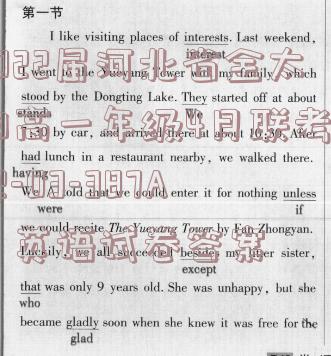 第一节
I like visiting places of interests. Last weekend,
interest
I went to the Yueyang Tower with my family, which
stood by the Dongting Lake. They started off at about
stands We
7:30 by car, and arrived there at about 10:30. After
had lunch in a restaurant nearby, we walked there.
having
We ∧ told that we could enter it for nothing unless
were if
we could recite The Yueyang Tower by Fan Zhongyan.
Luckily, we all succeeded besides my sister,
except
that was only 9 years old. She was unhappy, but she
who
became gladly soon when she knew it was free for the
glad
2022届河北省全大
高一年级5月联考
-03-397A
英语试卷答案